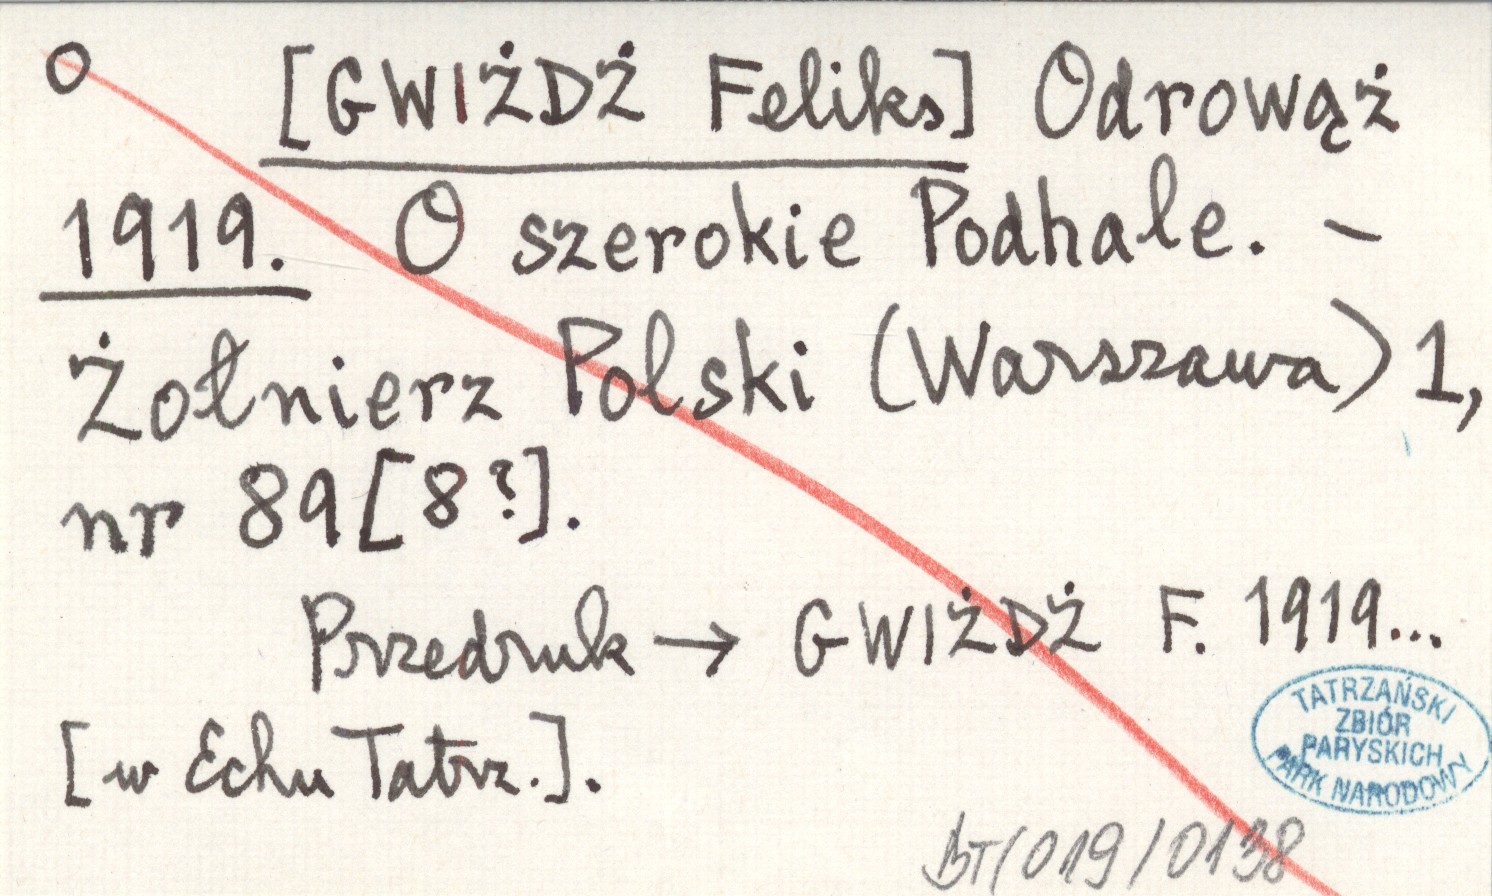 [GWIŻDŻ Feliks] Odrowąż
1919. O szerokie Podhale. –
Żołnierz Polski (Warszawa) 1,
nr 89[8?].
Przedruk → GWIŻDŻ F. 1919...
[w Echu Tatrz.].
TATRZAŃSKI
ZBIÓR
PARYSKICH
PARK NARODOWY
BT/019/0138